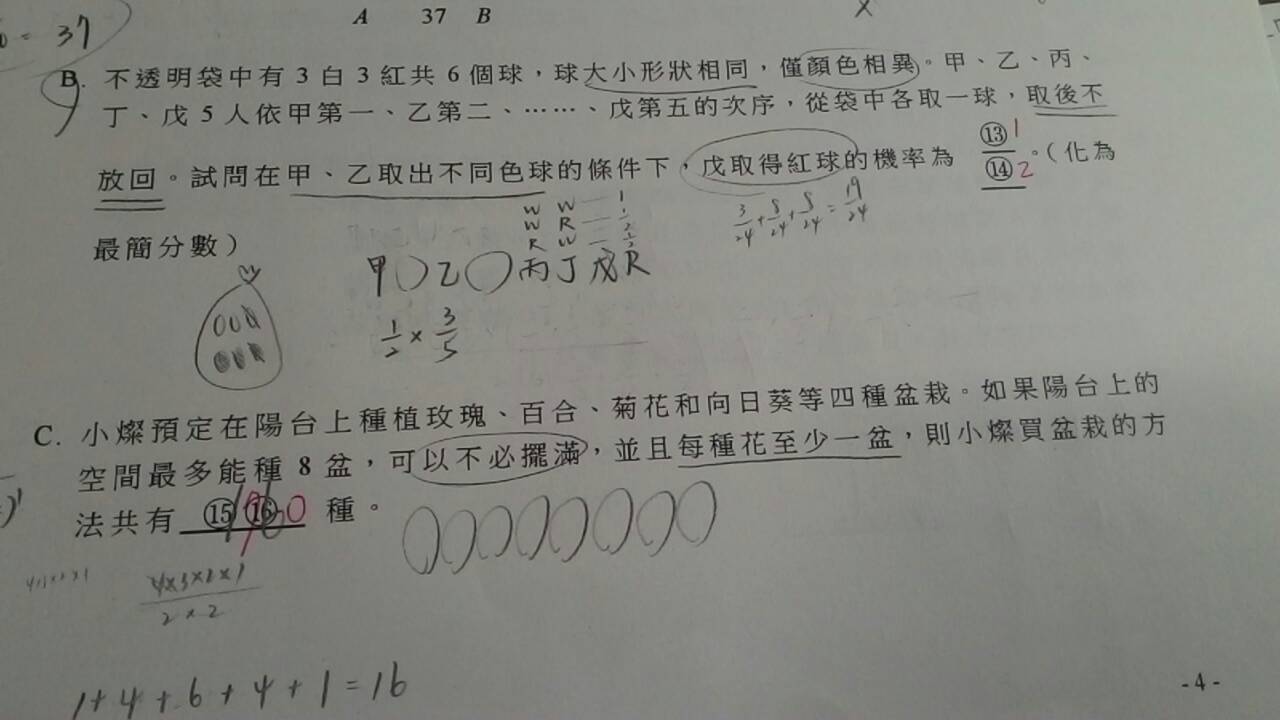 = 37
A 37 B
X
B. 不透明袋中有 3 白 3 紅共 6 個球，球大小形狀相同，僅顏色相異。甲、乙、丙、
丁、戊 5 人依甲第一、乙第二、……、戊第五的次序，從袋中各取一球，取後不
放回。試問在甲、乙取出不同色球的條件下，戊取得紅球的機率為 ⑬/⑭。（化為
1
2
最簡分數）
W W — 1
W R — 1/2
R W — 1/2
3/24 + 8/24 + 8/24 = 19/24
甲○乙○丙丁戊R
1/2 × 3/5
C. 小燦預定在陽台上種植玫瑰、百合、菊花和向日葵等四種盆栽。如果陽台上的
空間最多能種 8 盆，可以不必擺滿，並且每種花至少一盆，則小燦買盆栽的方
法共有 ⑮⑯ 種。
4×3×2×1
2 × 2
1+4+6+4+1=16
- 4 -